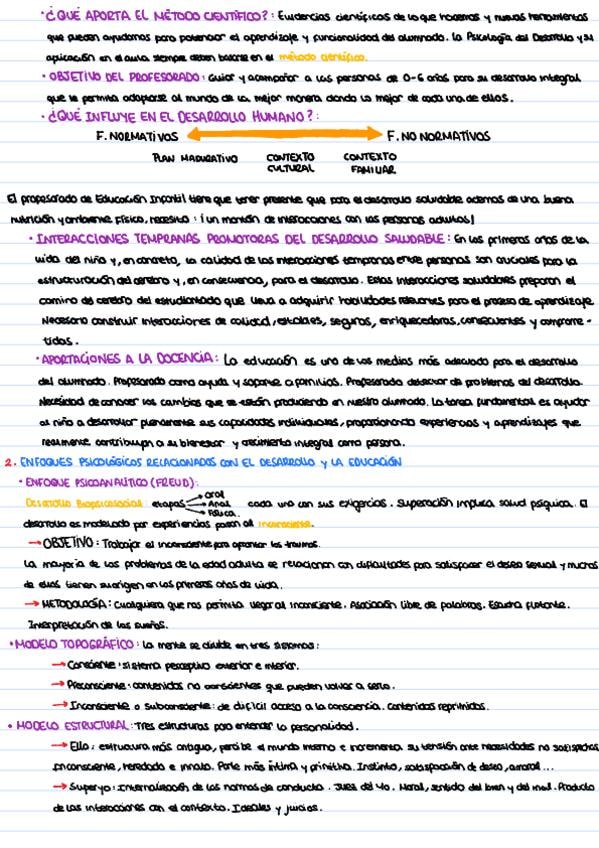 · ¿QUÉ APORTA EL MÉTODO CIENTÍFICO?: Evidencias científicas de lo que hacemos y nuevas herramientas
que pueden ayudarnos para potenciar el aprendizaje y funcionalidad del alumnado. La Psicología del Desarrollo y su
aplicación en el aula siempre deben basarse en el método científico.
· OBJETIVO DEL PROFESORADO: Guiar y acompañar a las personas de 0-6 años para su desarrollo integral
que le permita adaptarse al mundo de la mejor manera dando lo mejor de cada uno de ellos.
· ¿QUÉ INFLUYE EN EL DESARROLLO HUMANO?:
F. NORMATIVOS F. NO NORMATIVOS
PLAN MADURATIVO CONTEXTO CULTURAL CONTEXTO FAMILIAR
El profesorado de Educación Infantil tiene que tener presente que para el desarrollo saludable además de una buena
nutrición y ambiente físico, necesita: ¡un montón de interacciones con las personas adultas!
· INTERACCIONES TEMPRANAS PROMOTORAS DEL DESARROLLO SALUDABLE: En los primeros años de la
vida del niño y, en concreto, la calidad de las interacciones tempranas entre personas son cruciales para la
estructuración del cerebro y, en consecuencia, para el desarrollo. Estas interacciones saludables preparan el
camino del cerebro del estudiantado que lleva a adquirir habilidades relevantes para el proceso de aprendizaje.
Necesario construir interacciones de calidad, estables, seguras, enriquecedoras, consecuentes y comprome-
tidas.
· APORTACIONES A LA DOCENCIA: La educación es uno de los medios más adecuado para el desarrollo
del alumnado. Profesorado como ayuda y soporte a familias. Profesorado detector de problemas del desarrollo.
Necesidad de conocer los cambios que se están produciendo en nuestro alumnado. La tarea fundamental es ayudar
al niño a desarrollar plenamente sus capacidades individuales, proporcionando experiencias y aprendizajes que
realmente contribuyan a su bienestar y crecimiento integral como persona.
2. ENFOQUES PSICOLÓGICOS RELACIONADOS CON EL DESARROLLO Y LA EDUCACIÓN
· ENFOQUE PSICOANALÍTICO (FREUD):
Desarrollo Biopsicosocial etapas → oral → Anal → Fálica. cada una con sus exigencias. Superación implica salud psíquica. El
desarrollo es modelado por experiencias pasan al inconsciente.
→ OBJETIVO: Trabajar el inconsciente para afrontar los traumas.
La mayoría de los problemas de la edad adulta se relacionan con dificultades para satisfacer el deseo sexual y muchos
de ellos tienen su origen en los primeros años de vida.
→ METODOLOGÍA: Cualquiera que nos permita llegar al inconsciente. Asociación libre de palabras. Escucha flotante.
Interpretación de los sueños.
· MODELO TOPOGRÁFICO: La mente se divide en tres sistemas:
→ Consciente: sistema perceptivo exterior e interior.
→ Preconsciente: contenidos no conscientes que pueden volver a serlo.
→ Inconsciente o subconsciente: de difícil acceso a la consciencia. Contenidos reprimidos.
· MODELO ESTRUCTURAL: Tres estructuras para entender la personalidad.
→ Ello: estructura más antigua, percibe el mundo interno e incrementa su tensión ante necesidades no satisfechas.
Inconsciente, heredado e innato. Parte más íntima y primitiva. Instinto, satisfacción de deseo, amoral...
→ Superyo: Internalización de las normas de conducta. Juez del Yo. Moral, sentido del bien y del mal. Producto
de las interacciones con el contexto. Ideales y juicios.